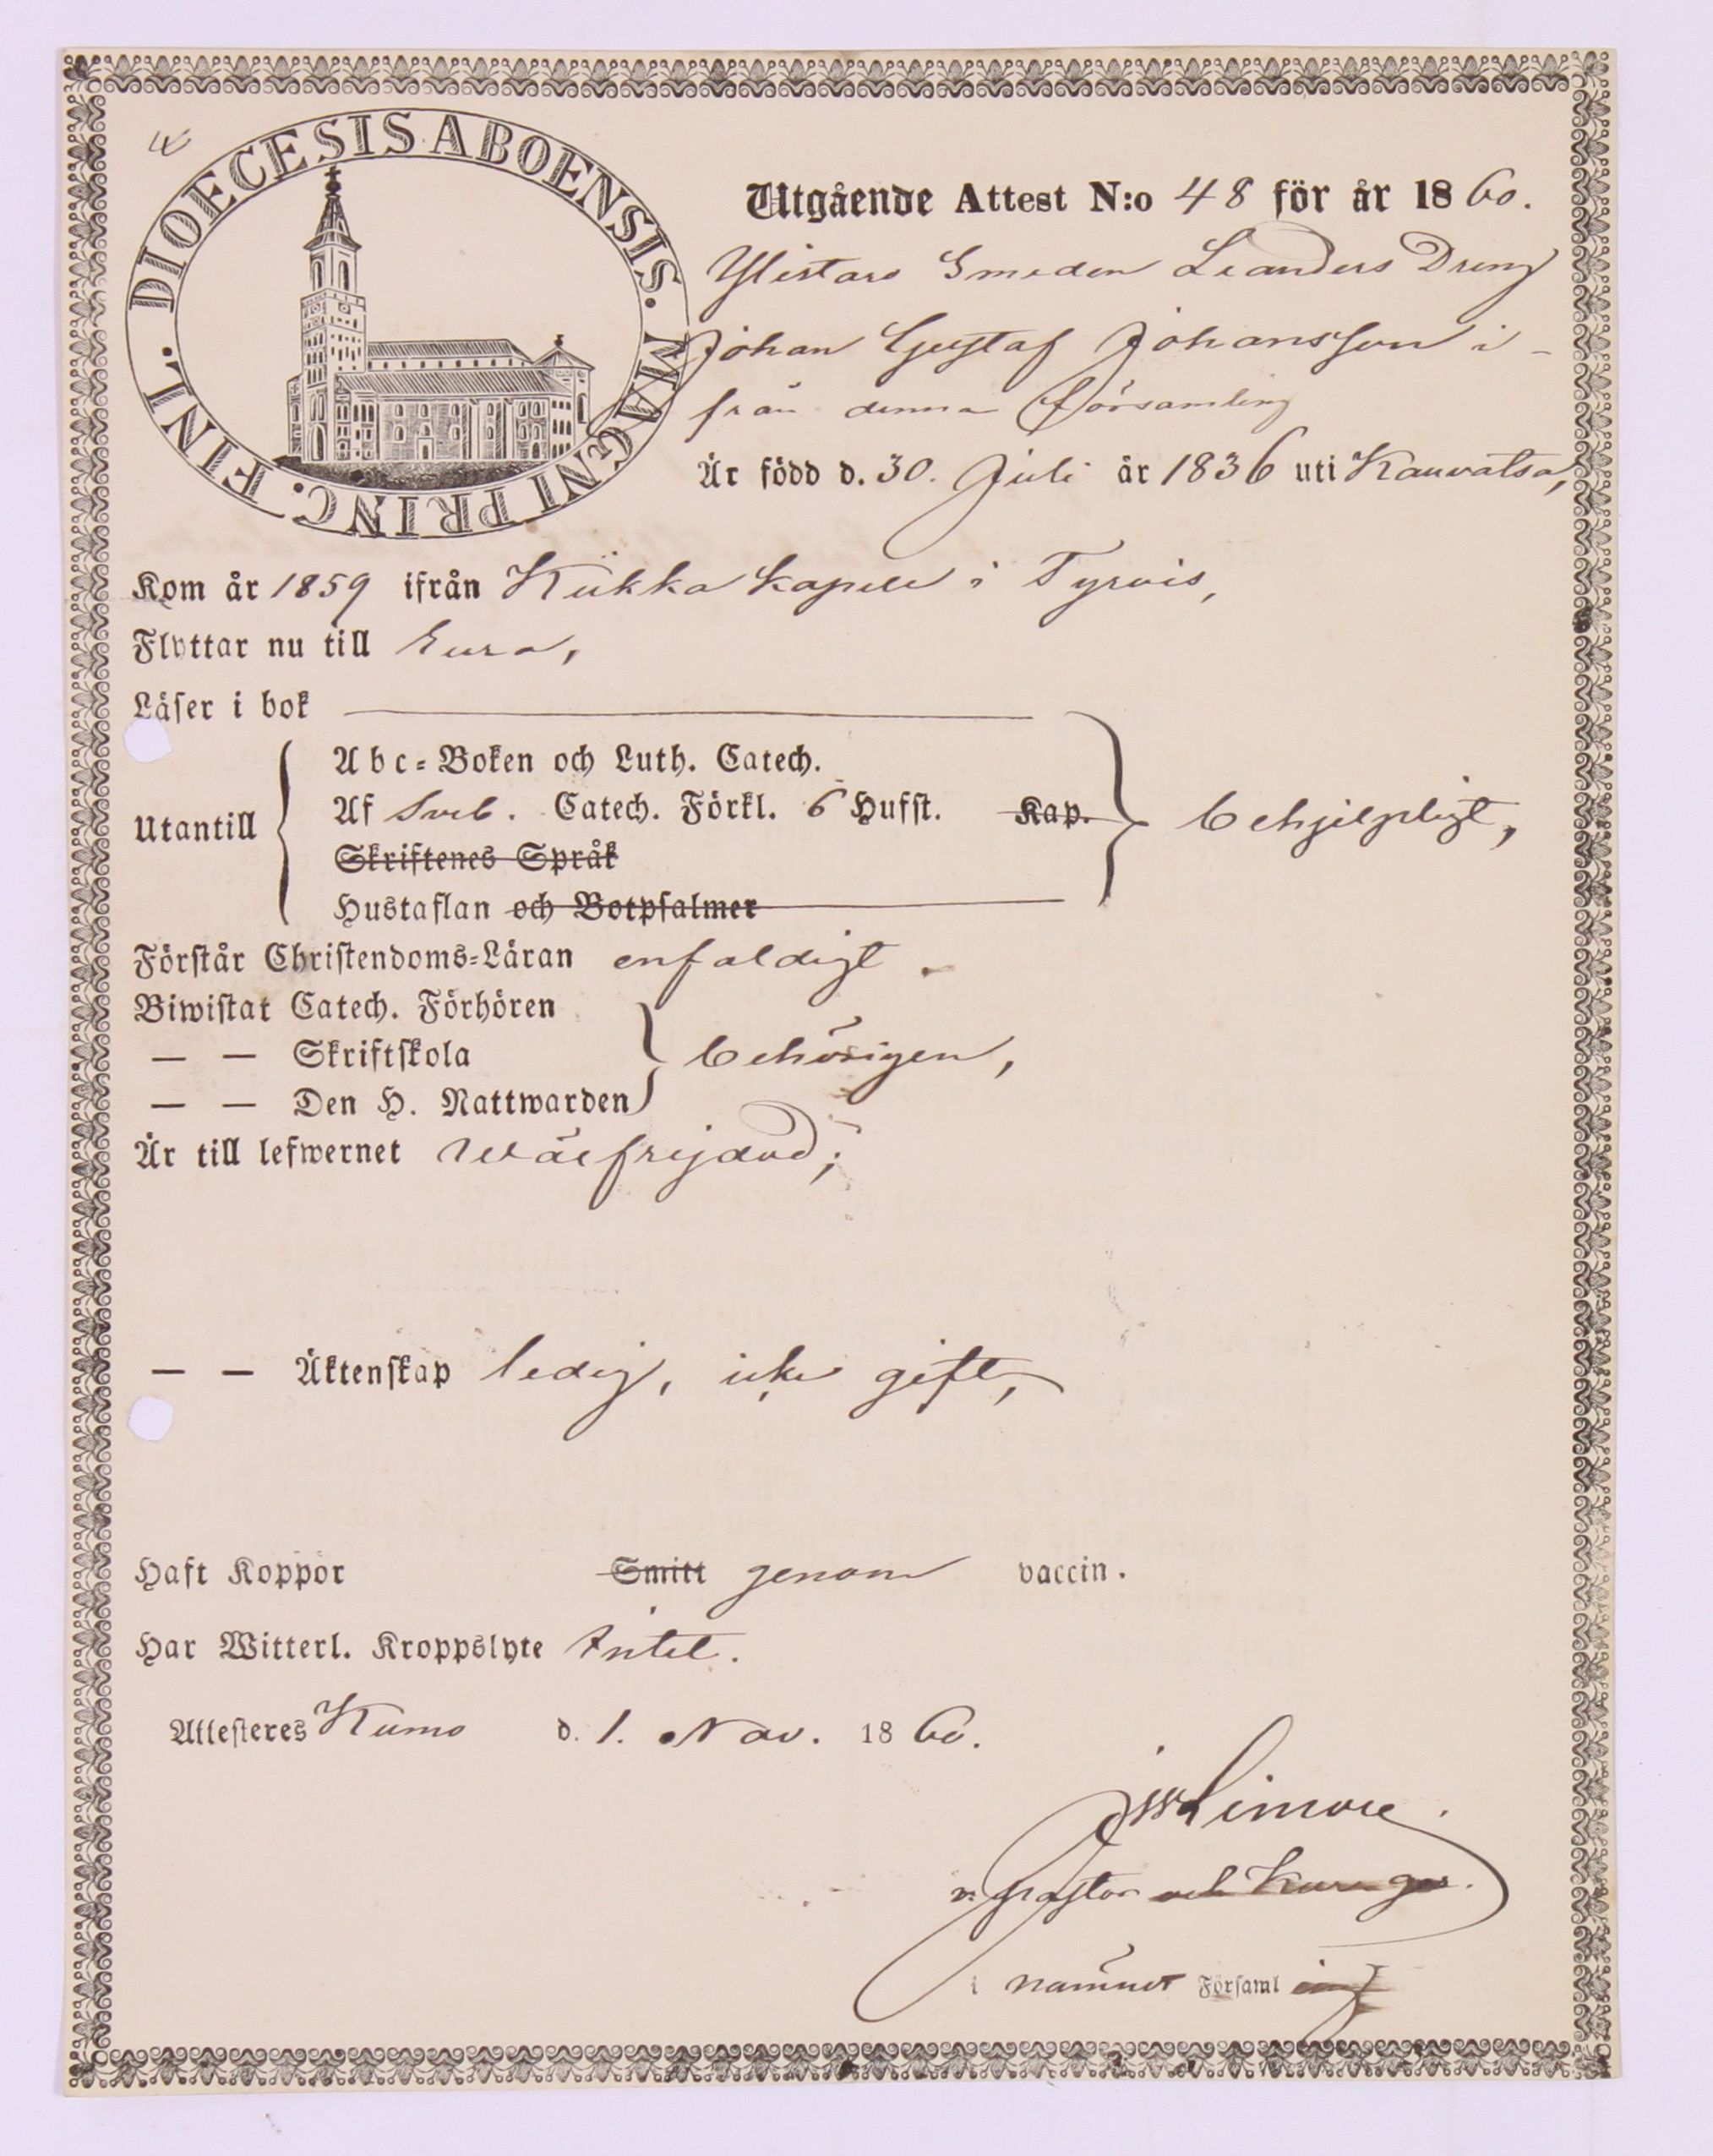 DIOECESIS ABOENSIS. MAGNI PRINC. FINL.
Utgående Attest N:o 48 för år 1860.
Ylistaro Smeden Leanders Dreng
Johan Gustaf Johansson i-
från denna församling
Är född d. 30. Juli år 1836 uti Kauvatsa,
Kom år 1859 ifrån Kiikka kapell i Tyrvis,
Flyttar nu till Eura,
Läser i bok
Abc-Boken och Luth. Catech.
Utantill Af Sveb. Catech. Förkl. 6 Hufst. Kap. behjelpligt,
Skriftenes Språk
Hustaflan och Botpsalmer
Förstår Christendoms-Läran enfaldigt.
Biwistat Catech. Förhören
— — Skriftskola behörigen,
— — Den H. Nattwarden
Är till lefwernet wälfrejdad;
— — Äktenskap ledig, icke gift,
Haft Koppor Smitt genom vaccin.
Har Witterl. Kroppslyte Intet.
Attesteres Kumo d. 1. Nov. 1860.
v. pastor och
i nämnde Församl ing